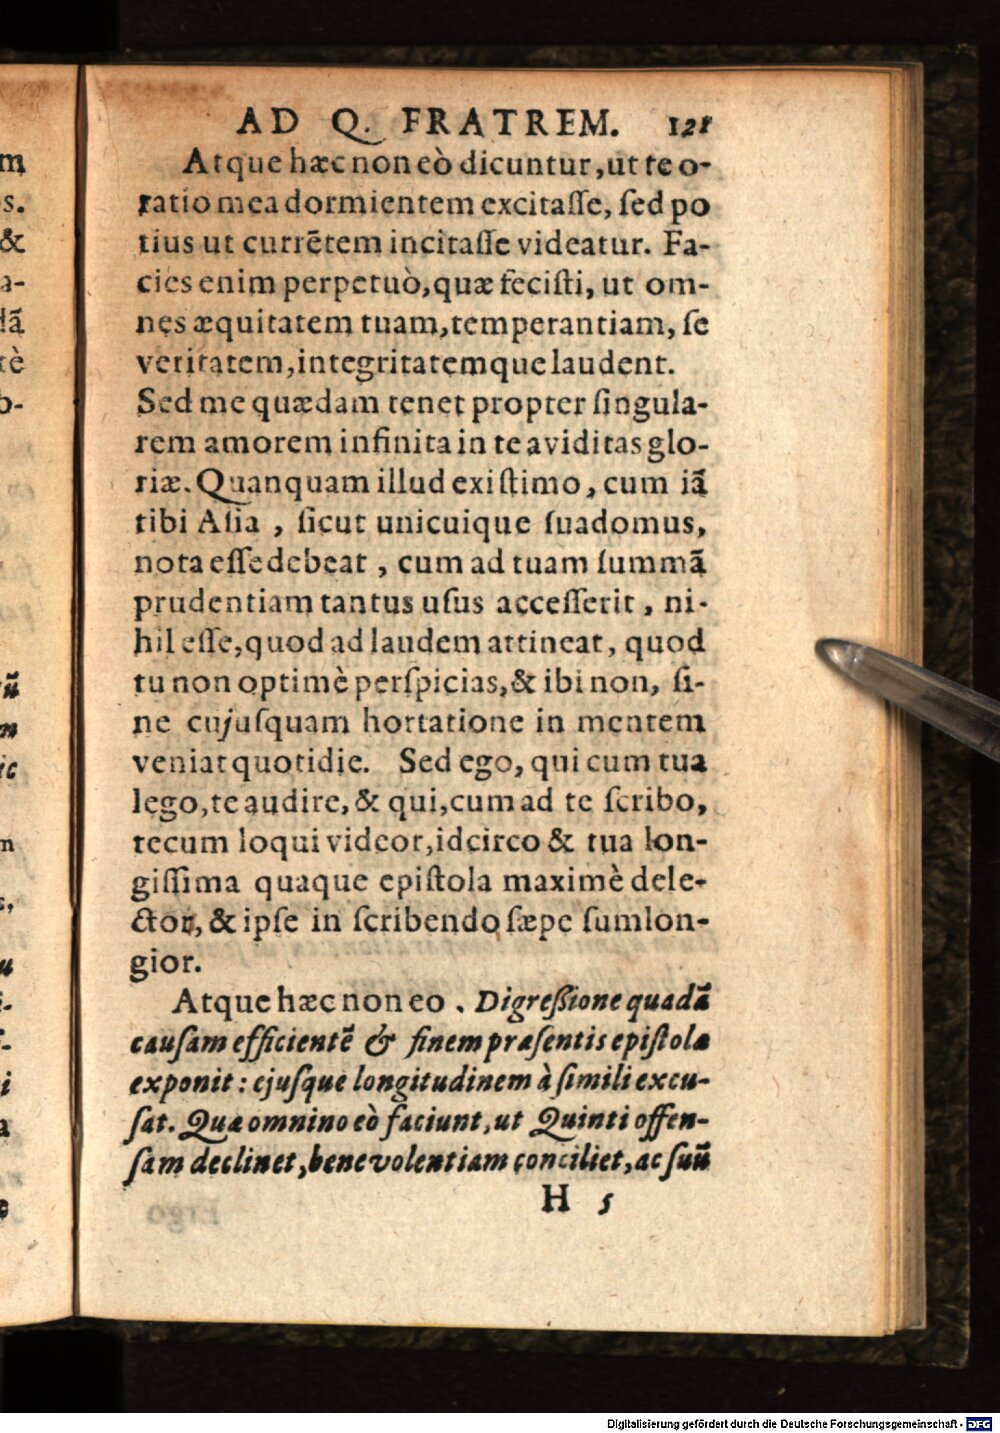 AD Q. FRATREM. 121
Atque hæc non eò dicuntur, ut te o-
ratio mea dormientem excitaſſe, ſed po
tius ut currētem incitaſſe videatur. Fa-
cies enim perpetuò, quæ feciſti, ut om-
nes æquitatem tuam, temperantiam, ſe
veritatem, integritatemque laudent.
Sed me quædam tenet propter ſingula-
rem amorem infinita in te aviditas glo-
riæ. Quanquam illud exiſtimo, cum iã
tibi Aſia, ſicut unicuique ſua domus,
nota eſſe debeat, cum ad tuam ſummã
prudentiam tantus uſus acceſſerit, ni-
hil eſſe, quod ad laudem attineat, quod
tu non optimè perſpicias, & ibi non, ſi-
ne cujuſquam hortatione in mentem
veniat quotidie. Sed ego, qui cum tua
lego, te audire, & qui, cum ad te ſcribo,
tecum loqui videor, idcirco & tua lon-
giſſima quaque epiſtola maximè dele-
ctor, & ipſe in ſcribendo ſæpe ſum lon-
gior.
Atque hæc non eo. Digreſſione quadã
cauſam efficientē & finem præſentis epiſtolæ
exponit: ejuſque longitudinem à ſimili excu-
ſat. Quæ omnino eò faciunt, ut Quinti offen-
ſam declinet, benevolentiam conciliet, ac ſuũ
H 5
Digitalisierung gefördert durch die Deutsche Forschungsgemeinschaft - DFG